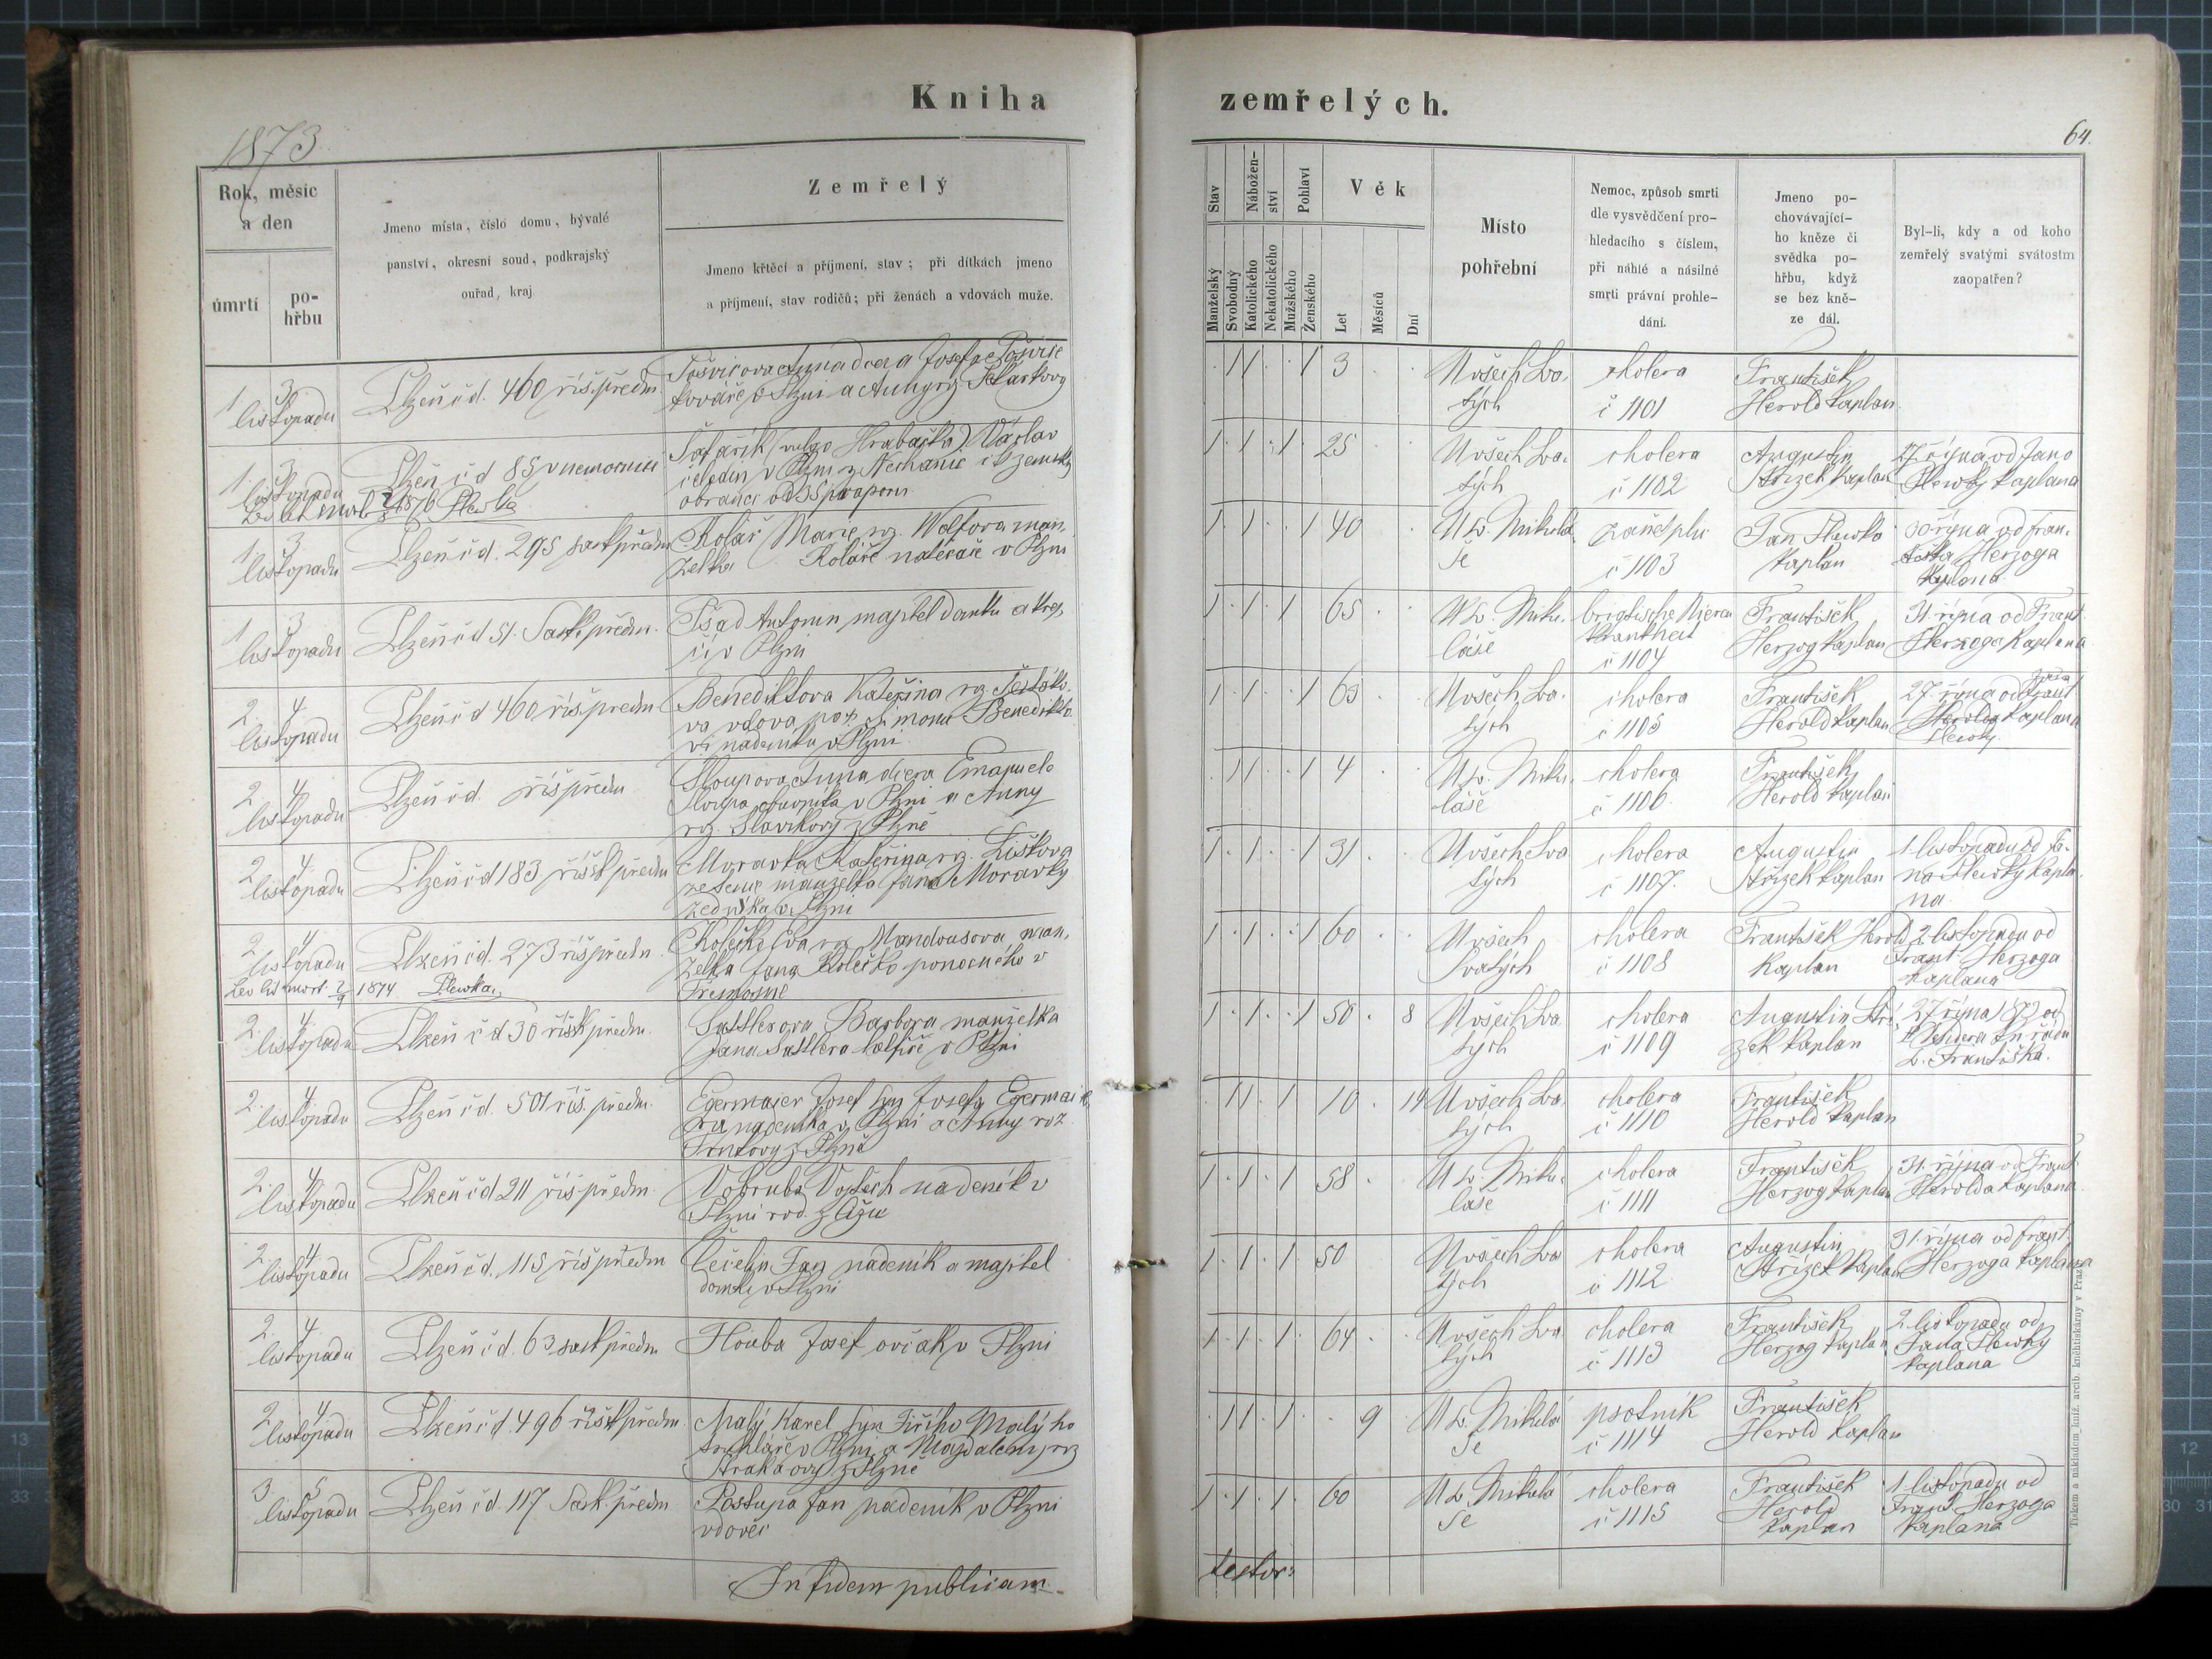 Kniha zemřelých.
1873
64.
Rok, měsíc
a den
úmrtí
po-
hřbu
Jmeno místa, číslo domu, bývalé
panství, okresní soud, podkrajský
ouřad, kraj
Zemřelý
Jmeno křtěcí a příjmení, stav; při dítkách jmeno
a příjmení, stav rodičů; při ženách a vdovách muže.
Stav
Nábožen-
ství
Pohlaví
Věk
Manželský
Svobodný
Katolického
Nekatolického
Mužského
Ženského
Let
Měsíců
Dní
Místo
pohřební
Nemoc, způsob smrti
dle vysvědčení pro-
hledacího s číslem,
při náhlé a násilné
smrti právní prohle-
dání.
Jmeno po-
chovávající-
ho kněze či
svědka po-
hřbu, když
se bez kně-
ze dál.
Byl-li, kdy a od koho
zemřelý svatými svátostm
zaopatřen?
1 3
listopadu
Plzeň čd. 460 říš. předm.
Anna dcera Josefa
kováře v Plzni a Anny rz.
1 1 1 3
U všech Sva-
tých
cholera
č 1101
František
Herold kaplan
1 3
listopadu
Plzeň čd 85 v nemocnici
Šafařík (vulgo Hrabačka) Václav
čeledín v Plzni z Nechanic
obránce od 35 praporu
1 1 1 25
U všech Sva-
tých
cholera
č 1102
Augustin
Střízek kaplan
27 října od Jana
Slewky kaplana
1 3
listopadu
Plzeň čd. 295 sask předm
Kolář Marie rz. Wolfova man-
želka Koláře natěrače v Plzni
1 1 1 40
U sv. Mikulá
še
zánět plic
č 1103
Jan Slewka
kaplan
30 října od Fran-
tiška Herzoga
kaplana
1 3
listopadu
Plzeň čd 51. Sask. předm.
Antonin majitel domku a krej-
čí v Plzni
1 1 1 65
U sv. Miku-
láše
brigtische Nieren
krankheit
č 1104
František
Herzog kaplan
31 října od Frant
Herzoga kaplana
2 4
listopadu
Plzeň čd 460 říš předm
Benediktova Kateřina rz.
va vdova poz. Šimonu Benedikto-
vi nadeníku v Plzni
1 1 1 65
U všech Sva-
tých
cholera
č 1105
František
Herold kaplan
27. října od
kaplana
Slewky
2 4
listopadu
Plzeň čd. říš předm
Sloupova Anna dcera Emanuele
Sloupa v Plzni a Anny
rz. Slavíkový z Plzně
1 1 1 4
U sv. Miku-
láše
cholera
č 1106
František
Herold kaplan
2 4
listopadu
Plzeň čd 183 říšsk předm
Moravka Kateřina rz. Liškova
manželka Jana Moravky
zedníka v Plzni
1 1 1 31
U všech Sva
tých
cholera
č 1107.
Augustin
Střízek kaplan
1 listopadu od Ja-
na Slewky kapla-
na
2 4
listopadu
Plzeň čd. 273 říš předm.
Kolečko Eva rz. Mandousova man-
želka Jana Kolečko ponocného v
Třemošné
1874 Slewka
1 1 1 60
U všech
Svatých
cholera
č 1108
František Herold
kaplan
2 listopadu od
Frant. Herzoga
kaplana
2 4
listopadu
Plzeň čd 30 říšsk předm.
Sattlerova Barbora manželka
Jana Sattlera v Plzni
1 1 1 50 8
U všech Sva
tých
cholera
č 1109
Augustin Stří-
zek kaplan
27 října 1873 od
kn. řádu
S. Františka.
2. 4
listopadu
Plzeň čd. 501 říš. předm.
Egermaier Josef syn Josefa Egermaie
ra nadeníka v Plzni a Anny roz
z Plzně
1 1 1 10 14
U všech Sva
tých
cholera
č 1110
František
Herold kaplan
2. 4
listopadu
Plzeň čd 211 říš předm.
Vobruba Vojtěch nadeník v
Plzni rod. z
1 1 1 58
U sv. Miku-
laše
cholera
č 1111
František
Herzog kaplan
31. října od Frant
Herolda kaplana
2. 4
listopadu
Plzeň čd. 115 říš předm
Čečelin Jan nadeník a majitel
domku v Plzni
1 1 1 50
U všech Sva
tých
cholera
č 1112
Augustin
Střízek kaplan
31. října od Frant.
Herzoga kaplana
2. 4
listopadu
Plzeň čd. 63 sask předm
Houba Josef ovčák v Plzni
1 1 1 64
U všech Sva
tých
cholera
č 1113
František
Herzog kaplan
2. listopadu od
Jana Slewky
kaplana
2. 4
listopadu
Plzeň čd. 496 říšsk předm
Malý Karel syn Jiřího Malýho
truhláře v Plzni a Magdaleny rz
Strakovy z Plzně
1 1 1 9
U sv. Mikulá
še
psotník
č 1114
František
Herold kaplan
3. 5
listopadu
Plzeň čd. 117 Sask. předm
Postupa Jan nadeník v Plzni
vdovec
1 1 1 60
U sv Mikulá
še
cholera
č 1115
František
Herold
kaplan
1 listopadu od
Frant. Herzoga
kaplana
In fidem publicam
testor:
Tiskem a nákladem kníž. arcib. kněhtiskárny v Praze